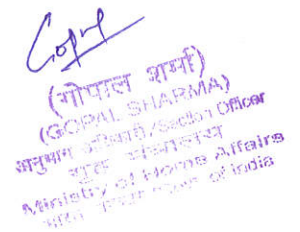 (गोपाल शर्मा)
(GOPAL SHARMA)
अनुभाग अधिकारी/Section Officer
गृह मंत्रालय
Ministry of Home Affairs
of India